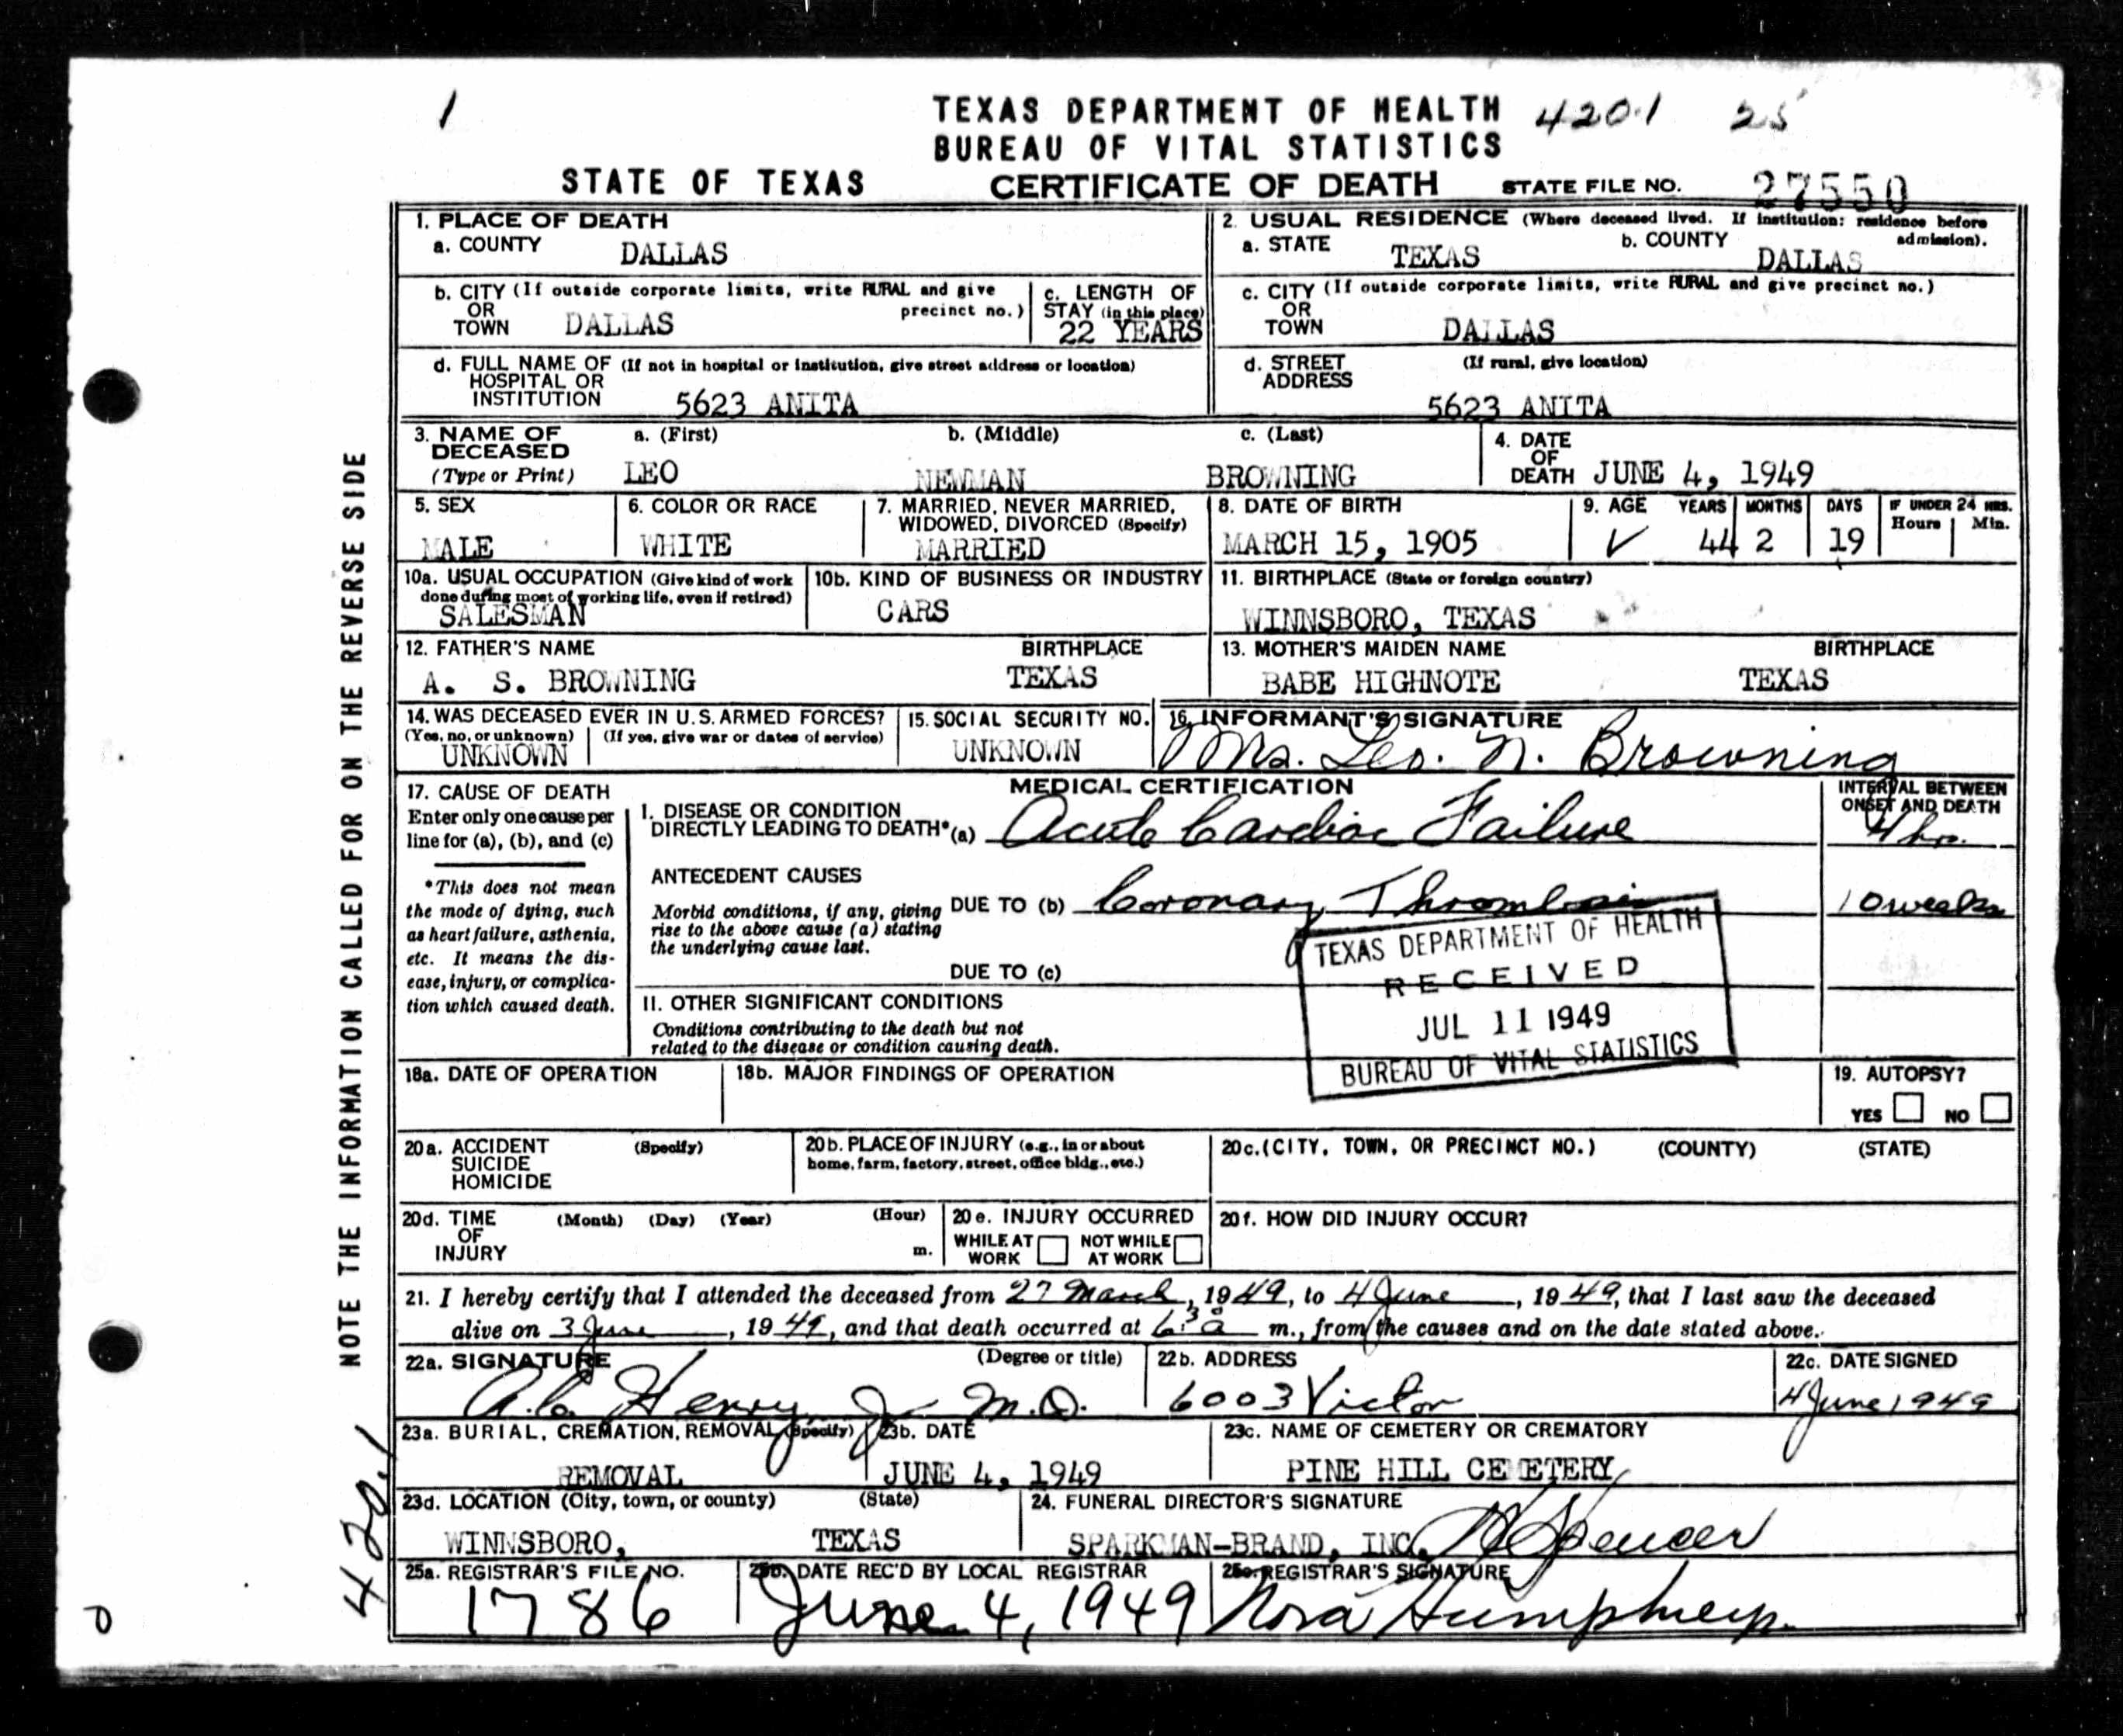 1
TEXAS DEPARTMENT OF HEALTH 420.1 25
BUREAU OF VITAL STATISTICS
STATE OF TEXAS CERTIFICATE OF DEATH STATE FILE NO. 27550
1. PLACE OF DEATH
a. COUNTY DALLAS
2. USUAL RESIDENCE (Where deceased lived. If institution: residence before admission).
a. STATE TEXAS b. COUNTY DALLAS
b. CITY (If outside corporate limits, write RURAL and give precinct no.)
OR
TOWN DALLAS
c. LENGTH OF
STAY (in this place)
22 YEARS
c. CITY (If outside corporate limits, write RURAL and give precinct no.)
OR
TOWN DALLAS
d. FULL NAME OF (If not in hospital or institution, give street address or location)
HOSPITAL OR
INSTITUTION 5623 ANITA
d. STREET (If rural, give location)
ADDRESS
5623 ANITA
3. NAME OF DECEASED
(Type or Print)
a. (First) LEO
b. (Middle) NEWMAN
c. (Last) BROWNING
4. DATE
OF
DEATH JUNE 4, 1949
5. SEX
MALE
6. COLOR OR RACE
WHITE
7. MARRIED, NEVER MARRIED,
WIDOWED, DIVORCED (Specify)
MARRIED
8. DATE OF BIRTH
MARCH 15, 1905
9. AGE YEARS MONTHS DAYS IF UNDER 24 HRS.
Hours Min.
✓ 44 2 19
10a. USUAL OCCUPATION (Give kind of work
done during most of working life, even if retired)
SALESMAN
10b. KIND OF BUSINESS OR INDUSTRY
CARS
11. BIRTHPLACE (State or foreign country)
WINNSBORO, TEXAS
12. FATHER'S NAME BIRTHPLACE
A. S. BROWNING TEXAS
13. MOTHER'S MAIDEN NAME BIRTHPLACE
BABE HIGHNOTE TEXAS
14. WAS DECEASED EVER IN U.S. ARMED FORCES?
(Yes, no, or unknown) (If yes, give war or dates of service)
UNKNOWN
15. SOCIAL SECURITY NO.
UNKNOWN
16. INFORMANT'S SIGNATURE
Mrs. Leo. N. Browning
17. CAUSE OF DEATH
Enter only one cause per
line for (a), (b), and (c)
*This does not mean
the mode of dying, such
as heart failure, asthenia,
etc. It means the dis-
ease, injury, or complica-
tion which caused death.
MEDICAL CERTIFICATION
I. DISEASE OR CONDITION
DIRECTLY LEADING TO DEATH*(a) Acute Cardiac Failure
INTERVAL BETWEEN
ONSET AND DEATH
4 hrs.
ANTECEDENT CAUSES
Morbid conditions, if any, giving
rise to the above cause (a) stating
the underlying cause last.
DUE TO (b) Coronary Thrombosis 10 weeks
DUE TO (c)
II. OTHER SIGNIFICANT CONDITIONS
Conditions contributing to the death but not
related to the disease or condition causing death.
TEXAS DEPARTMENT OF HEALTH
RECEIVED
JUL 11 1949
BUREAU OF VITAL STATISTICS
18a. DATE OF OPERATION
18b. MAJOR FINDINGS OF OPERATION
19. AUTOPSY?
YES NO
20a. ACCIDENT (Specify)
SUICIDE
HOMICIDE
20b. PLACE OF INJURY (e.g., in or about
home, farm, factory, street, office bldg., etc.)
20c. (CITY, TOWN, OR PRECINCT NO.) (COUNTY) (STATE)
20d. TIME (Month) (Day) (Year) (Hour)
OF
INJURY m.
20e. INJURY OCCURRED
WHILE AT WORK NOT WHILE AT WORK
20f. HOW DID INJURY OCCUR?
21. I hereby certify that I attended the deceased from 27 March, 1949, to 4 June, 1949, that I last saw the deceased
alive on 3 June, 1949, and that death occurred at 6:3 a m., from the causes and on the date stated above.
22a. SIGNATURE (Degree or title)
A.C. Henry Jr M.D.
22b. ADDRESS
6003 Victor
22c. DATE SIGNED
4 June 1949
23a. BURIAL, CREMATION, REMOVAL (Specify)
REMOVAL
23b. DATE
JUNE 4, 1949
23c. NAME OF CEMETERY OR CREMATORY
PINE HILL CEMETERY
23d. LOCATION (City, town, or county) (State)
WINNSBORO, TEXAS
24. FUNERAL DIRECTOR'S SIGNATURE
SPARKMAN-BRAND, INC. Spencer
25a. REGISTRAR'S FILE NO.
1786
25b. DATE REC'D BY LOCAL REGISTRAR
June 4, 1949
25c. REGISTRAR'S SIGNATURE
Nora Humphreys
NOTE THE INFORMATION CALLED FOR ON THE REVERSE SIDE
420.1
0